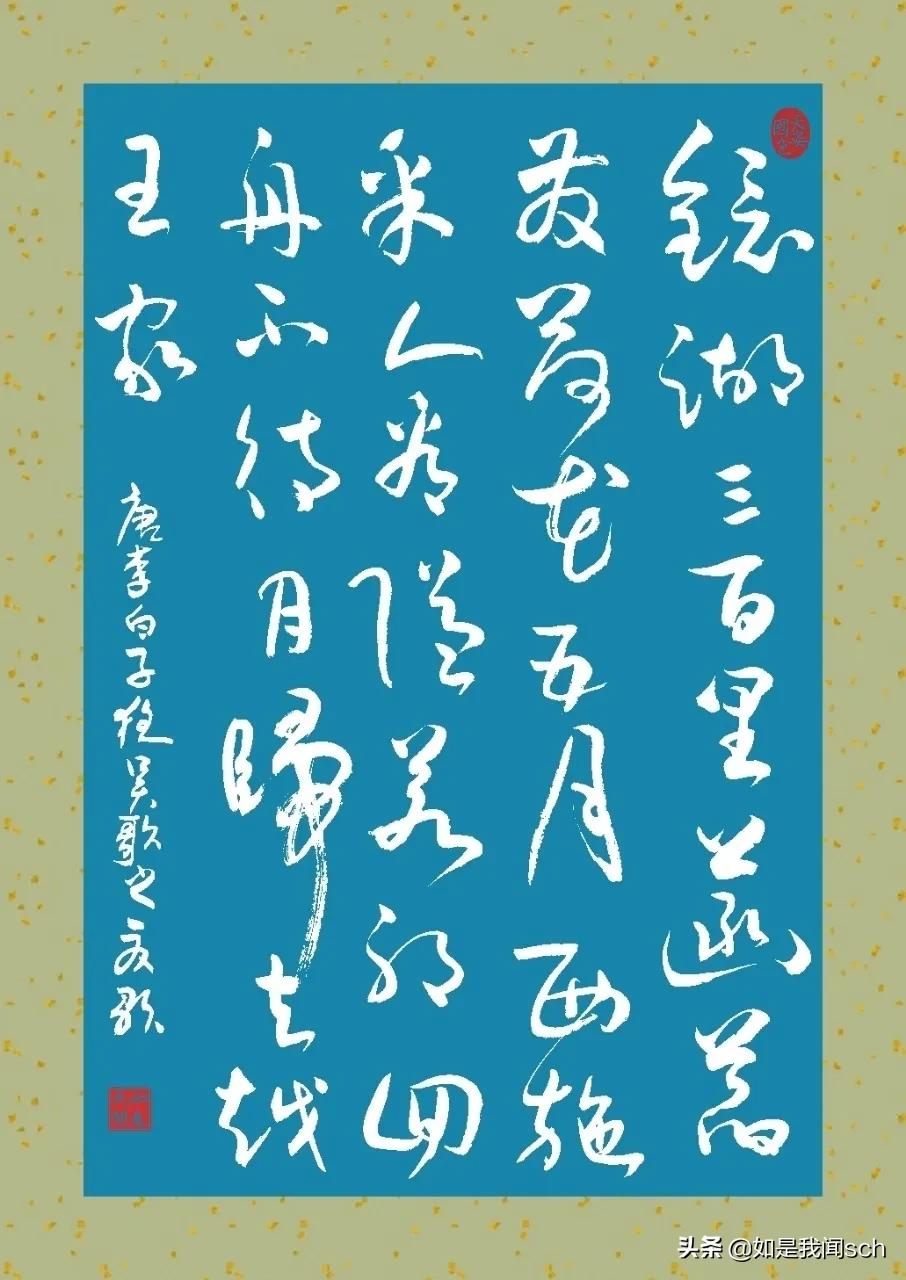 鏡湖三百里菡萏
發荷花五月西施
采人看隘若耶回
舟不待月歸去越
王家
唐李白子夜吴歌之夏歌
头条 @如是我闻sch